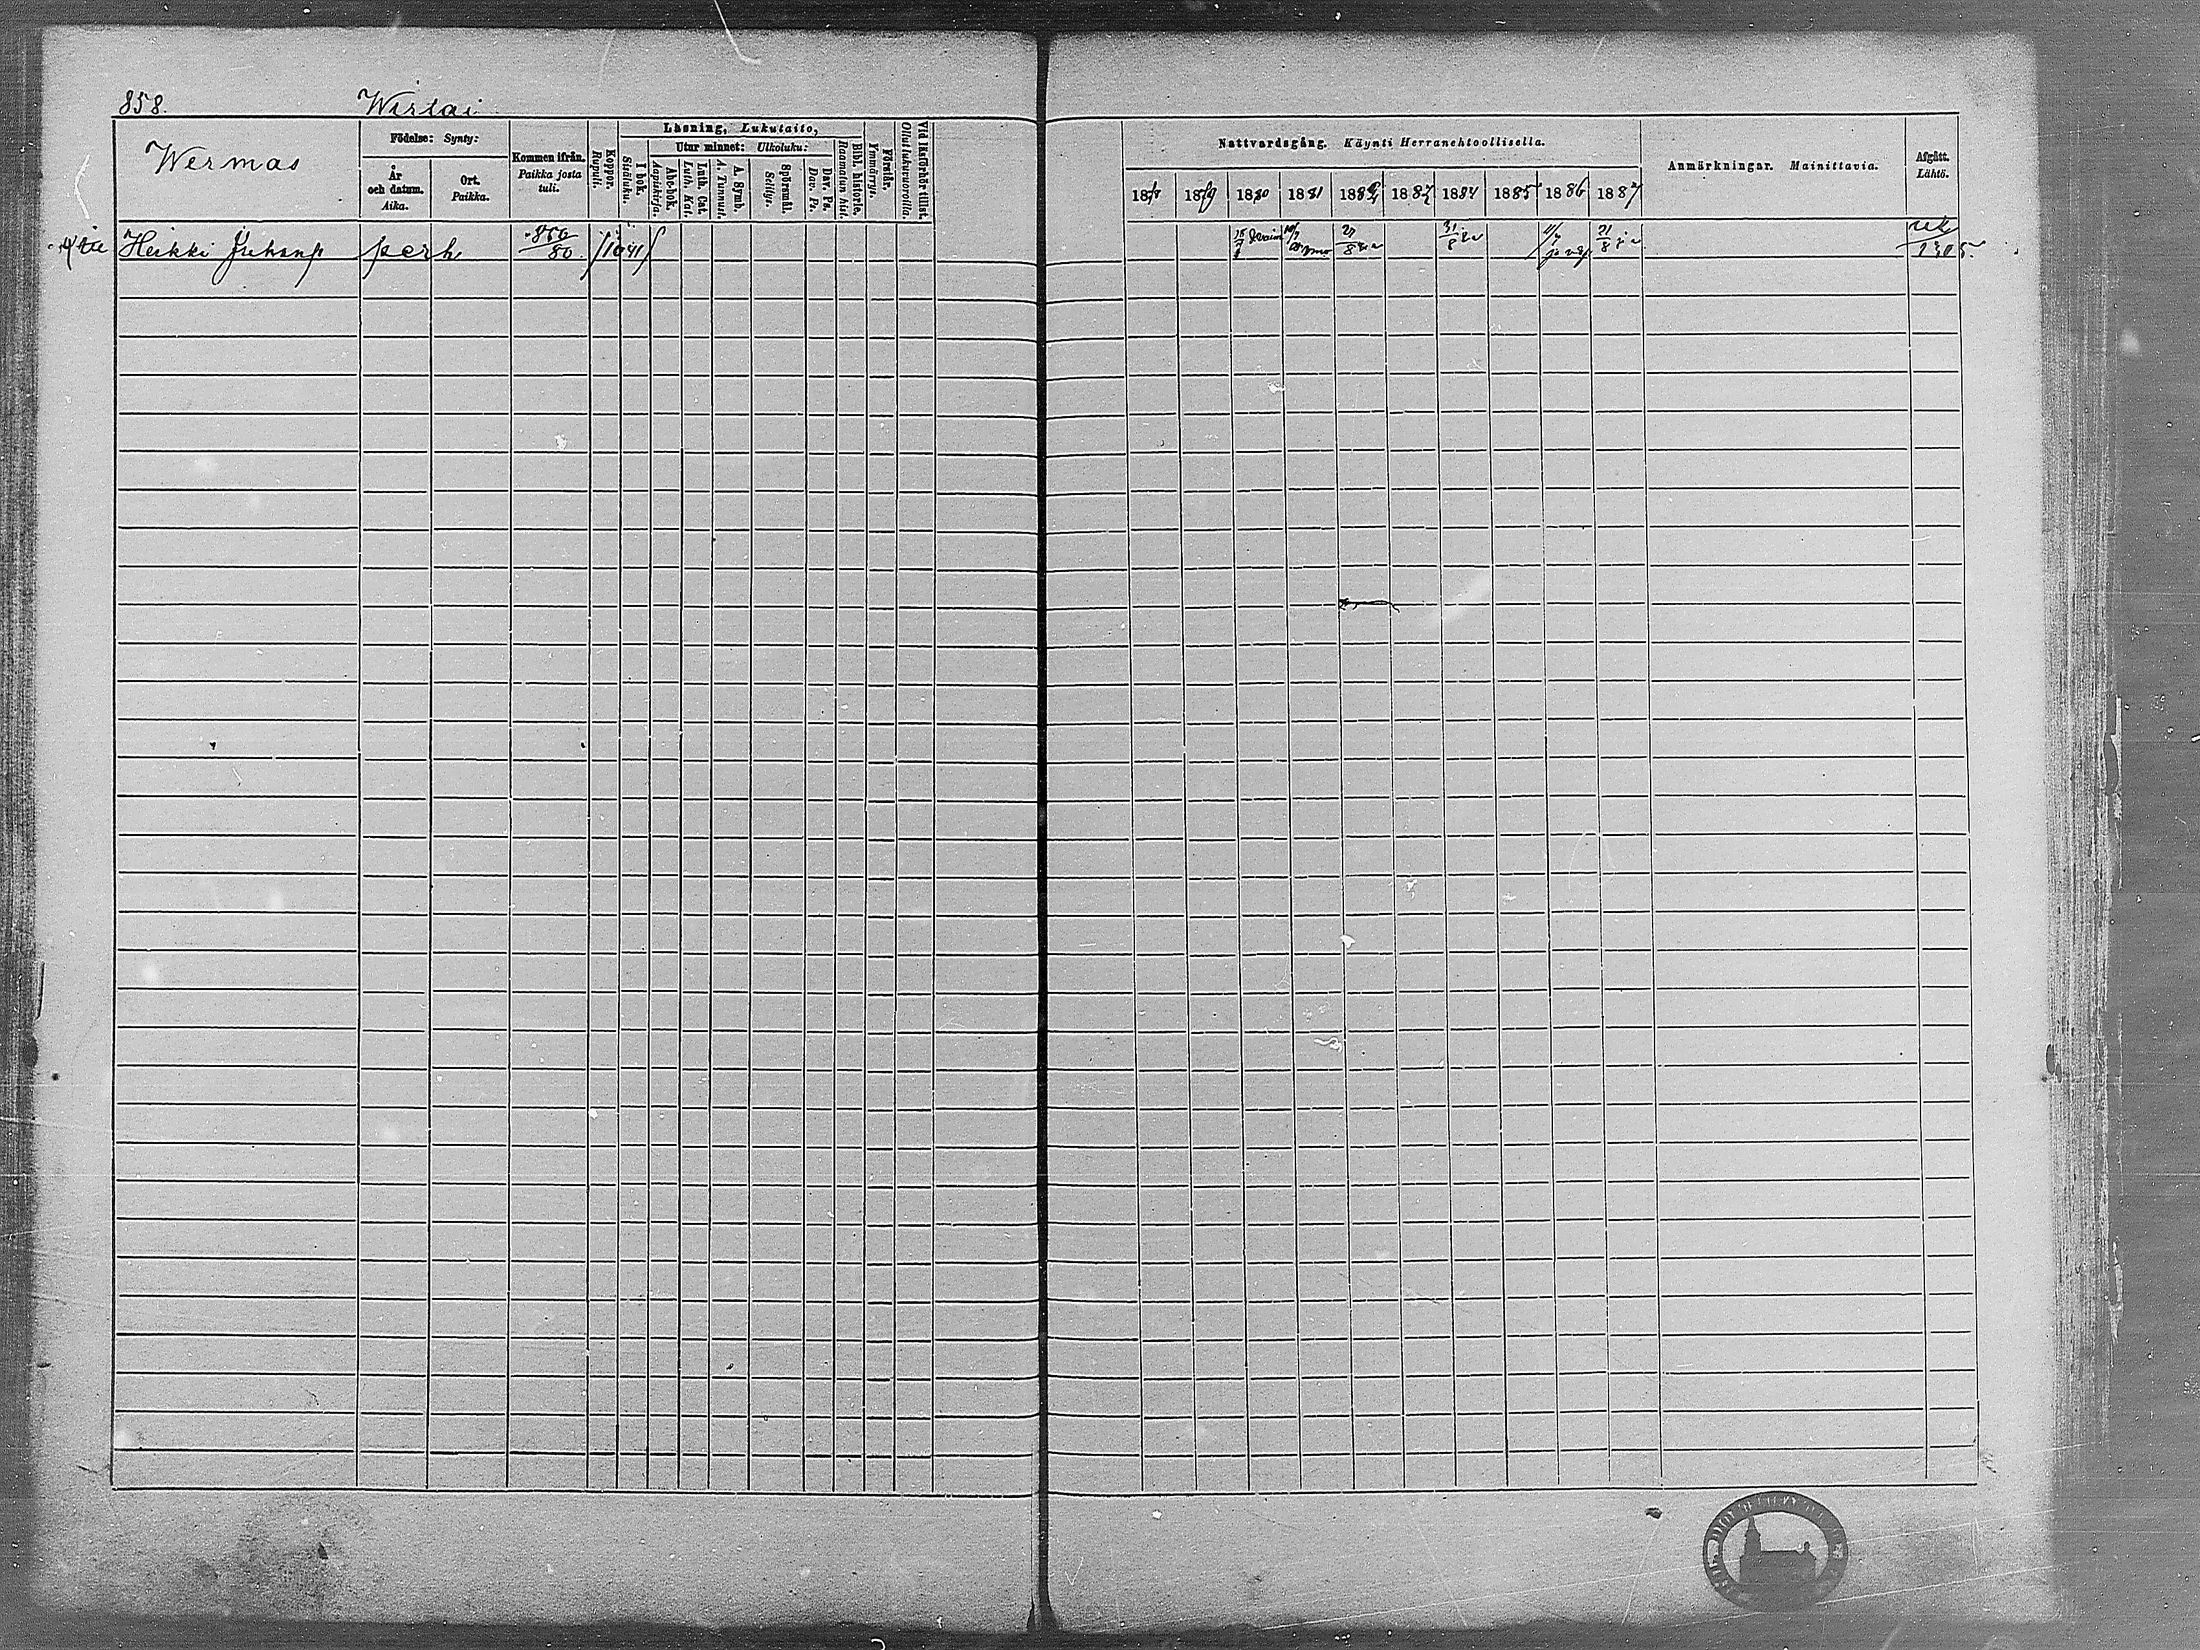 858. Wirtai
Wermas
Födelse: Synty:
År och datum. Aika.
Ort. Paikka.
Kommen ifrån. Paikka josta tuli.
Koppor. Rupuli.
Läsning, Lukutaito,
I bok. Sisäluku.
Utur minnet: Ulkoluku:
Abc-bok. Aapiskirja.
Luth. Cat. Luth. Kat.
A. Symb. A. Tunnust.
Spörsmål. Selitys.
Dav. Ps. Dav. Ps.
Bibl. historie. Raamatun hist.
Förstår. Ymmärrys.
Vid läsförhör tillst. Ollut lukuvuoroilla.
Nattvardsgång. Käynti Herranehtoollisella.
1878 1879 1880 1881 1882 1883 1884 1885 1886 1887
Anmärkningar. Mainittavia.
Afgått. Lähtö.
Heikki Juhanp perh 866/80 /1041/ 27/8 31/8 21/8 1305.